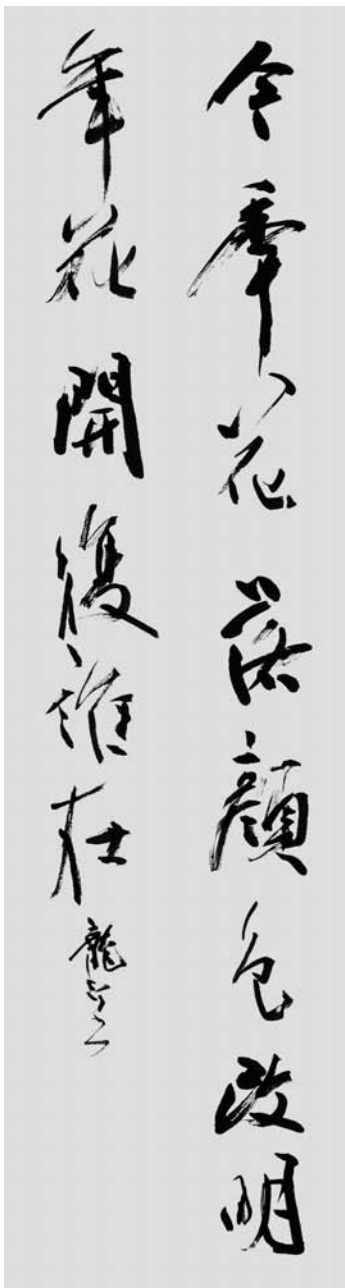 今年花落顔色改明
年花開復誰在
龍